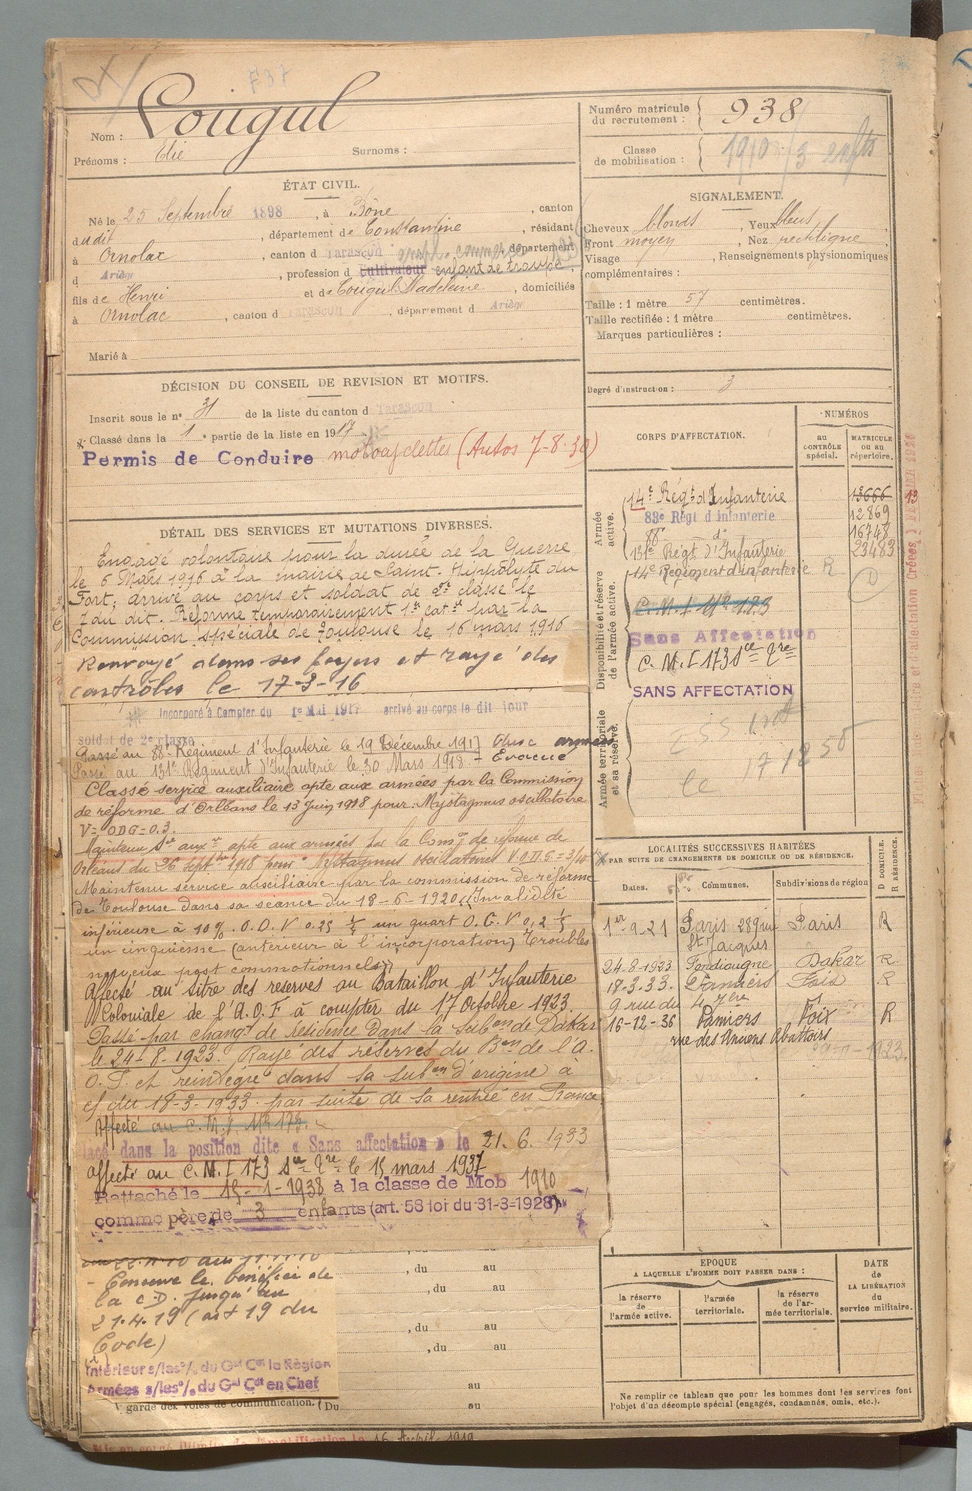 F37
Nom : Cougul
Prénoms : Elie Surnoms :
Numéro matricule du recrutement : 938
Classe de mobilisation : 1910 / 3 enfts
ÉTAT CIVIL.
Né le 25 Septembre 1898, à Bône, canton
dudit, département de Constantine, résidant
à Ornolac, canton d Tarascon, département
d Ariège, profession d Cultivateur enfant de troupe
fils de Henri et de Cougul Madeleine, domiciliés
à Ornolac, canton d Tarascon, département d Ariège
Marié à
SIGNALEMENT.
Cheveux blonds, Yeux bleus
Front moyen, Nez rectiligne
Visage, Renseignements physionomiques
complémentaires :
Taille : 1 mètre 57 centimètres.
Taille rectifiée : 1 mètre centimètres.
Marques particulières :
Degré d'instruction : 3
DÉCISION DU CONSEIL DE REVISION ET MOTIFS.
Inscrit sous le n° 31 de la liste du canton d Tarascon
Classé dans la 1e partie de la liste en 1917
Permis de Conduire motocyclettes (Autos 7-8-30)
DÉTAIL DES SERVICES ET MUTATIONS DIVERSES.
Engagé volontaire pour la durée de la Guerre
le 6 Mars 1916 à la mairie de Saint-Hippolyte du
Fort, arrivé au corps et soldat de 2e classe le
7 du dit. Réformé temporairement 1e cat. par la
Commission spéciale de Toulouse le 16 mars 1916
Renvoyé dans ses foyers et rayé des
contrôles le 17-3-16
Incorporé à Compter du 1e Mai 1917 arrivé au corps le dit jour
soldat de 2e classe
Passé au 88e Régiment d'Infanterie le 19 Décembre 1917
Passé au 131e Régiment d'Infanterie le 30 Mars 1918 - Evacué
Classé service auxiliaire apte aux armées par la Commission
de réforme d'Orléans le 13 juin 1918 pour : Nystagmus oscillatoire
V = ODG = 0.3.
Maintenu Sce auxre apte aux armées par la Comon de réforme de
Orléans du 26 septbre 1918 pour Nystagmus oscillatoire
Maintenu service auxiliaire par la commission de réforme
de Toulouse dans sa séance du 18-6-1920 (Invalidité
inférieure à 10% O.D. V 0.25 un quart O.G. V 0,2 1/5
un cinquième (antérieur à l'incorporation) Troubles
nerveux post commotionnels)
Affecté au titre des reserves au Bataillon d'Infanterie
Coloniale de l'A.O.F à compter du 17 Octobre 1923
Passé par changt de résidence dans la subon de Dakar
le 24-8-1923. Rayé des réserves du Bon de l'A.
O.F. et réintégré dans sa subon d'origine à
c/ du 18-3-1933 par suite de sa rentrée en France
Affecté au C.M.I N° 173
lacé dans la position dite « Sans affectation » le 21.6.1933
affecté au C.M.I 173 le 15 mars 1937
Rattaché le 15-1-1938 à la classe de Mob 1910
comme père de 3 enfants (art. 58 loi du 31-3-1928)
- Conserve le bénéfice de
la C.D. jusqu'au
21.4.19 (art 19 du
Code)
Intérieur s/les °/. du Gal Ct la Région
Armées s/les °/. du Gal Cdt en Chef
V garde des voies de communication. (Du au
, du au
, du au
, du au
, du au
au
CORPS D'AFFECTATION.
NUMÉROS
au CONTRÔLE spécial.
MATRICULE ou au répertoire.
Armée active.
14e Régt d'Infanterie 13666
83e Régt d'Infanterie 12869
88e do 16748
131e Régt d'Infanterie 23483
Disponibilité et réserve de l'armée active.
14e Régiment d'infanterie R
C.M.I N° 173
Sans Affectation
C.M.I 173
SANS AFFECTATION
Armée territoriale et sa réserve.
le 171250
LOCALITÉS SUCCESSIVES HABITÉES
PAR SUITE DE CHANGEMENTS DE DOMICILE OU DE RÉSIDENCE.
Dates. Communes. Subdivisions de région D DOMICILE. R RÉSIDENCE.
1er-9-21 Paris St Jacques Paris R
24-8-1923 Fondiougne Dakar R
18-3-33. Pamiers Foix R
9 rue du
16-12-36 Pamiers Foix R
rue des Anciens Abattoirs
EPOQUE
A LAQUELLE L'HOMME DOIT PASSER DANS :
la réserve de l'armée active.
l'armée territoriale.
la réserve de l'armée territoriale.
DATE de LA LIBÉRATION du service militaire.
Ne remplir ce tableau que pour les hommes dont les services font
l'objet d'un décompte spécial (engagés, condamnés, omis, etc.).